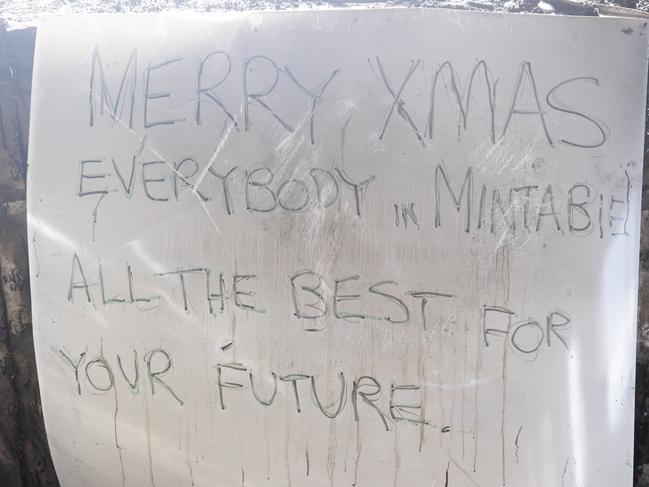 MERRY XMAS
EVERYBODY IN MINTABiE
ALL THE BEST FOR
YOUR FUTURE.